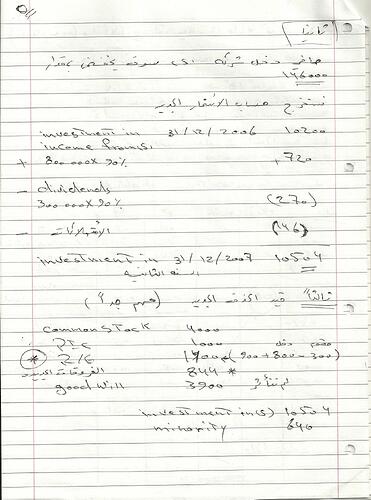 ثانيا
صافى دخل شركة S سوف يخفض بمقدار
146000
نستخرج حساب الأستثمار الجديد
investment in 31/12/2006 10200
income from S.
+ 800 000 X 90% +720
- dividends
300 000 X 90% (270)
- الأستهلاكات (146)
investment in 31/12/2007 10504
السنة الثانية
ثالثا" قيد الحذف الجديد (مهم جداً)
common stock 4000
PIC 1000
* R/E 1400 (900+800-300)
الفروقات الجديدة 844 *
good will 3900
investment in (S) 10504
minority 640